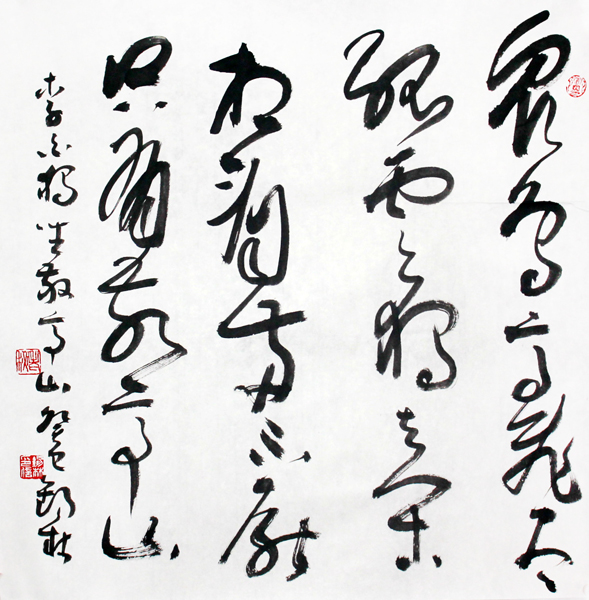 众鸟高飞尽
孤云独去闲
相看两不厌
只有敬亭山
李白独坐敬亭山